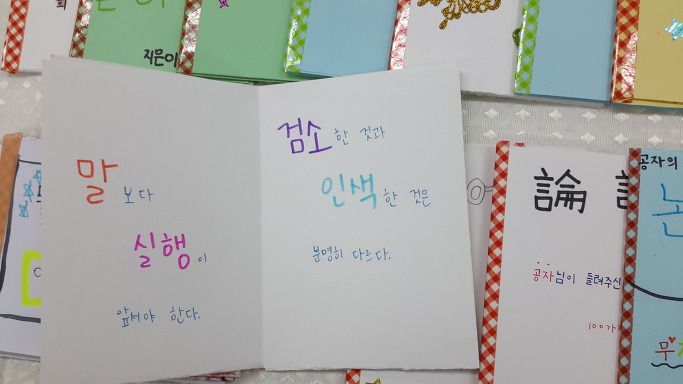 지은이
말 보다
실행이
앞서야 한다.
검소한 것과
인색한 것은
분명히 다르다.
論
공자님이 들려주신
100가지
공자의
논